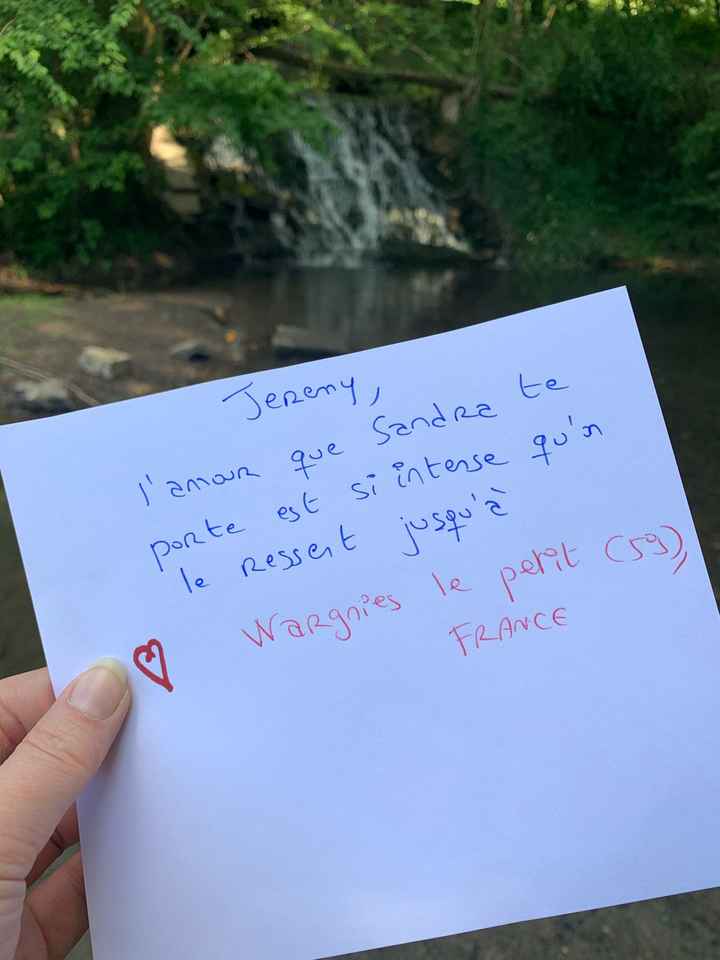 Jeremy,
l'amour que Sandra te
porte est si intense qu'on
le ressent jusqu'à
Wargnies le petit (59),
FRANCE